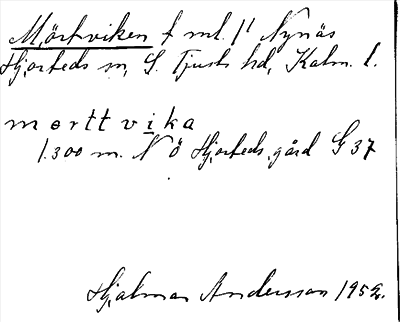 Mörtviken t ml. /1 Nynäs
Hjorteds sn, S. Tjusts hd, Kalm. l.
mørttvika
1.300 m. N Ö Hjorteds gård G 37
Hjalmar Andersson 1952.